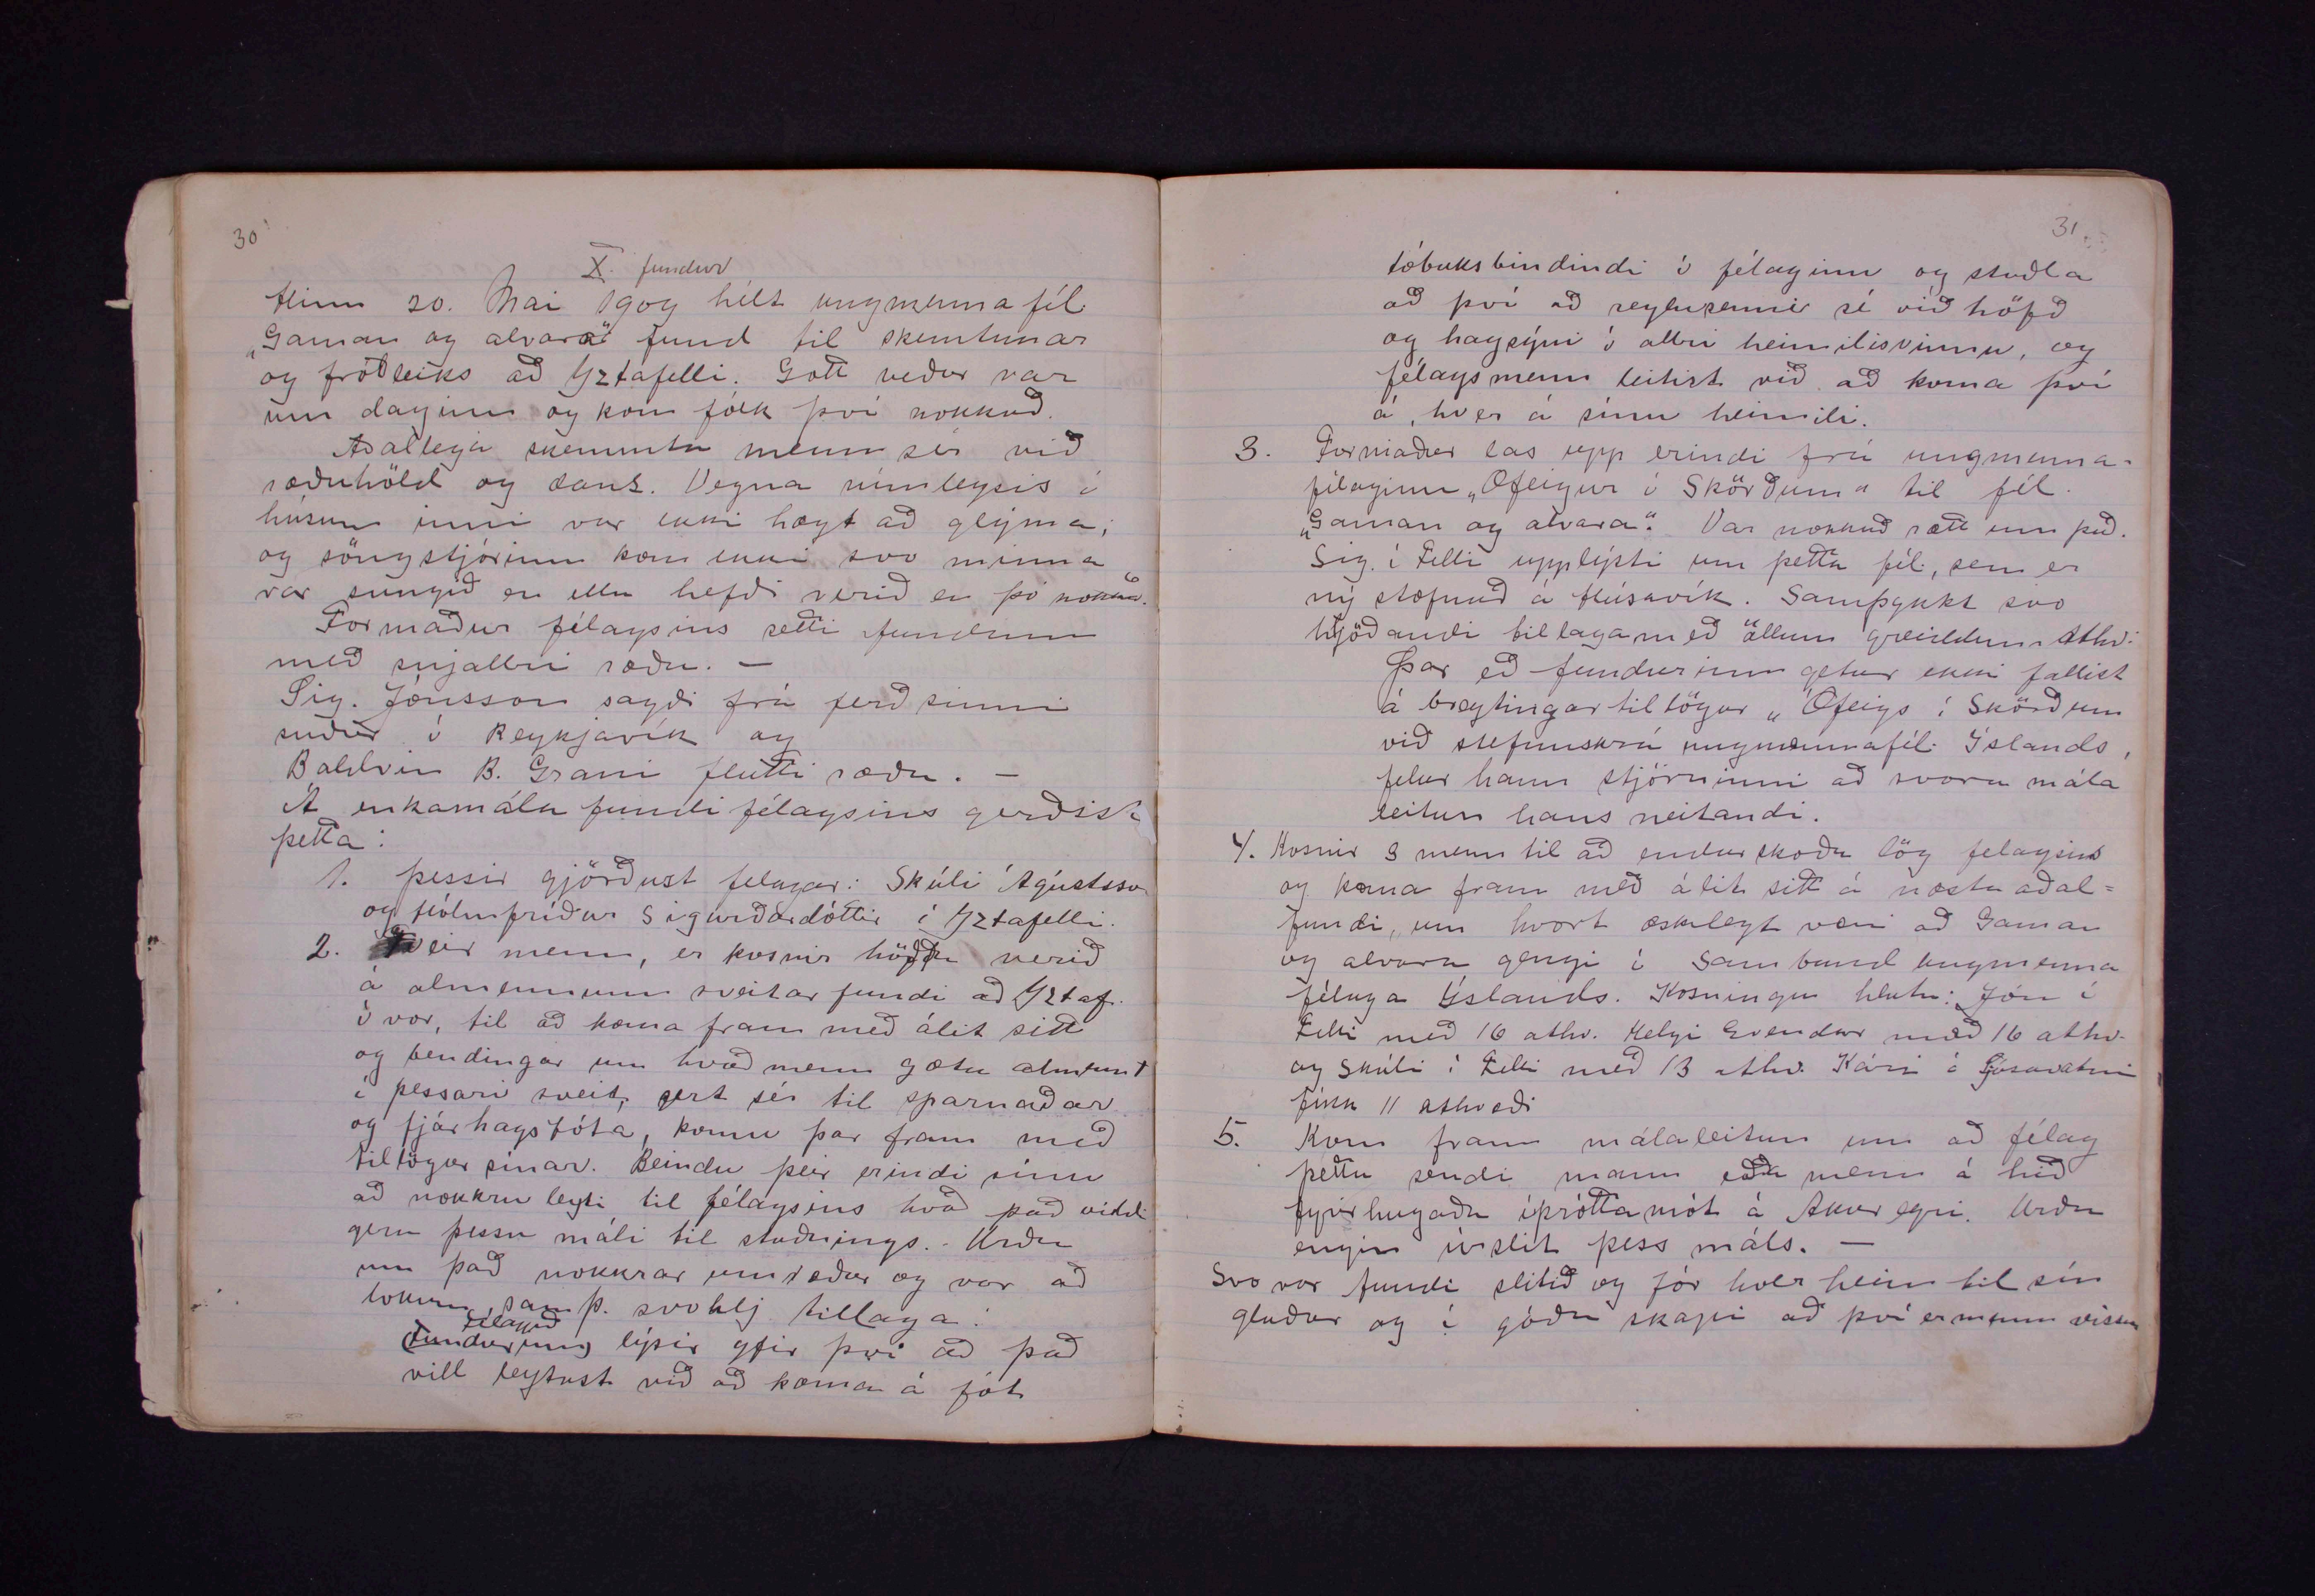 30
X. fundur
Hinn 20. Mai 1909 hélt ungmennafél.
„Gaman og alvara“ fund til skemtunar
og fróðleiks að Yztafelli. Gott veður var
um daginn og kom fólk því nokkuð.
Aðallega skemmtu menn sér við
ræðuhöld og dans. Vegna rúmleysis í
húsum inni var ekki hægt að glýma,
og söngstjórinn kom ekki svo minna
var sungið en ella hefði verið en þó nokkuð.
Formaður félagsins setti fundinn
með snjallri ræðu. —
Sig. Jónsson sagði frá ferð sinni
suður í Reykjavík og
Baldvin B. Grani flutti ræðu. —
Á enkamála fundi félagsins gerðist
þetta:
1. þessir gjörðust felagar: Skúli Ágústsson
og Hólmfríður Sigurðardóttir í Yztafelli.
2. Tveir menn, er kosnir höfðu verið
á almennum sveitarfundi að Yztaf.
í vor, til að koma fram með álit sitt
og bendingar um hvað menn gætu almennt
í þessari sveit, gert sér til sparnaðar
og fjárhagsbóta, komu þar fram með
tillögur sínar. Beindu þeir erindi sínu
að nokkru leyti til félagsins hvað það vildi
gera þessu máli til stuðnings. - Urðu
um það nokkrar umræður og var að
lokum, samþ. svohlj. tillaga:
Félagið
(Fundurinn) lýsir yfir því að það
vill leytast við að koma á fót
31.
tóbaksbindindi í félaginu og stuðla
að því að reglusemi sé við höfð
og hagsýni í allri heimilisvinnu, og
félagsmenn leitist við að koma því
á, hver á sínu heimili.
3. Formaður las upp erindi frá ungmenna-
félaginu „Ófeigur í Skörðum“ til fél.
„Gaman og alvara“. Var nokkuð rætt um það.
Sig. í Felli upplýsti um þetta fél., sem er
ný stofnað á Húsavík. Samþykt svo
hljóðandi tillaga með öllum greiddum atkv:
Þar eð fundurinn getur ekki fallist
á breytingartillögur „Ófeigs í Skörðum
við stefnuskrá ungmennafél. Íslands,
felur hann stjórninni að svara mála
leitun hans neitandi.
4. Kosnir 3 menn til að endurskoða lög felagsins
og koma fram með álit sitt á næsta aðal-
fundi, um hvort æskilegt væri að Gaman
og alvara gengi í Samband ungmenna
félaga Íslands. Kosningu hlutu: Jón í
Felli með 16 atkv. Helgi Grendar með 16 atkv.
og Skúli í Felli með 13 atkv. Kári á Ljósavatni
fékk 11 atkvæði
5. Kom fram málaleitun um að félag
þetta sendi mann eða menn á hið
fyrirhugaða íþróttamót á Akureyri. Urðu
engin úrslit þess máls. —
Svo var fundi slitið og fór hver heim til sín
glaður og í góðu skapi að því er menn vissu